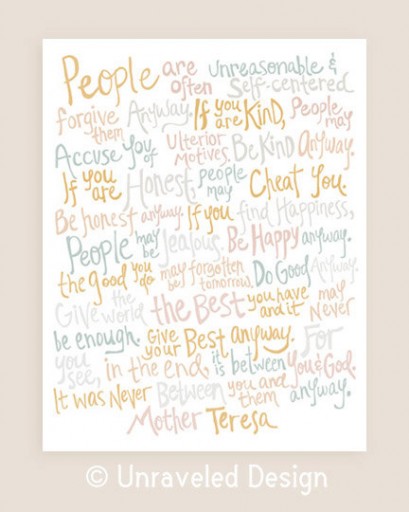 People are often unreasonable &
Self-centered
forgive them Anyway. If you are KIND, People may
Accuse You of Ulterior Motives. Be Kind Anyway.
If you are Honest, people may Cheat You.
Be honest anyway. If you find Happiness,
People may be Jealous. Be Happy anyway.
the good you do may be forgotten tomorrow. Do Good Anyway.
Give the world the Best you have and it may Never
be enough. Give your Best Anyway. For
you see, in the end, it is between you & God.
It was Never Between you and them anyway.
Mother Teresa
© Unraveled Design